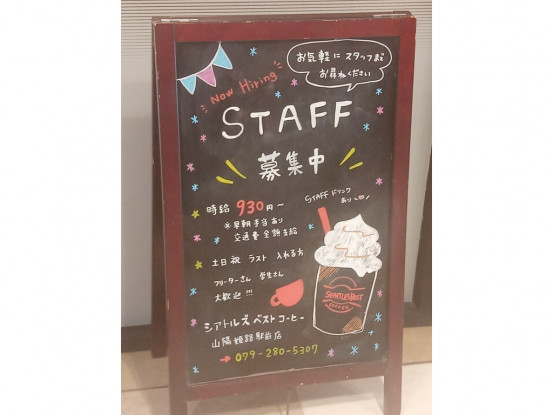 お気軽に スタッフまで
お尋ねください
Now Hiring
STAFF
募集中
時給 930円〜
※早朝手当あり
交通費全額支給
STAFF ドリンク
あり
土日祝 ラスト 入れる方
フリーターさん 学生さん
大歓迎!!!
SEATTLE'S BEST
COFFEE
シアトルズベストコーヒー
山陽姫路駅前店
→ 079-280-5307